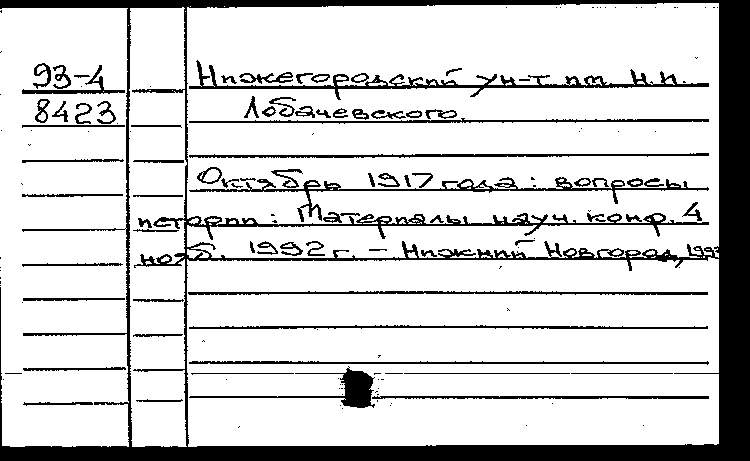 93-4 Нижегородский ун-т им. Н.И.
8423 Лобачевского.
Октябрь 1917 года: вопросы
истории: Материалы науч. конф. 4
нояб. 1992 г. - Нижний Новгород, 1993